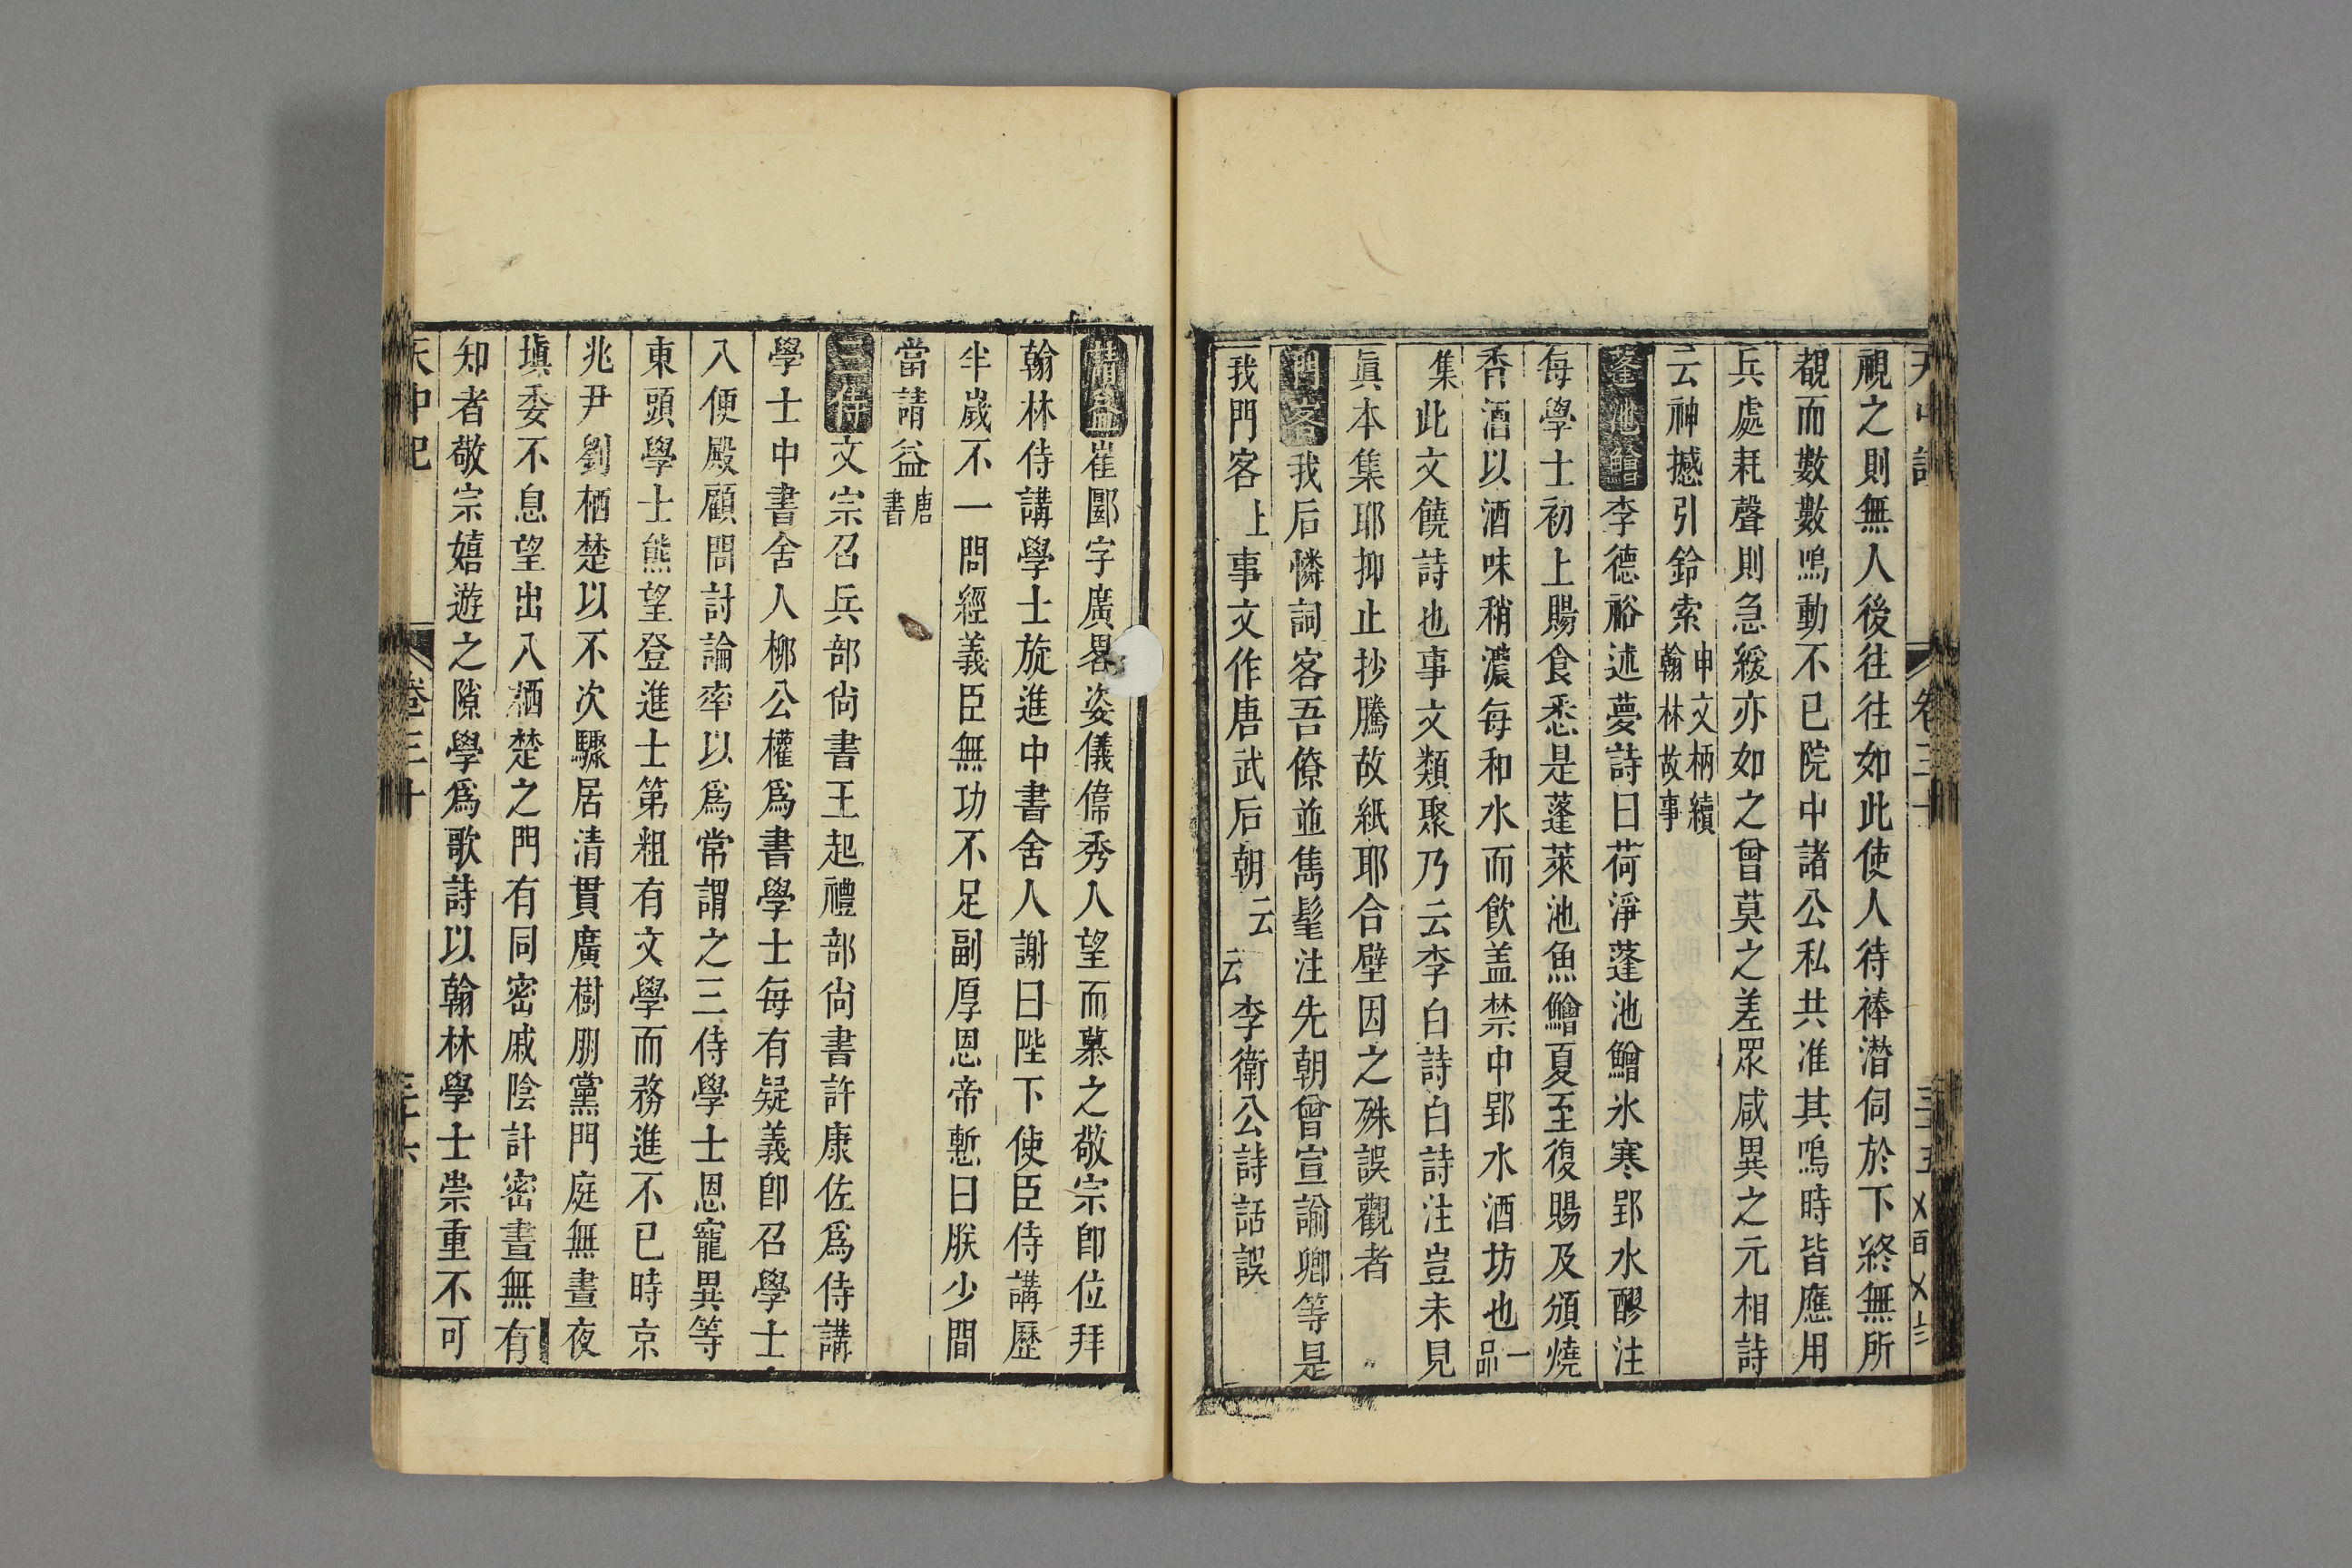 天中記 卷三十 三十五
視之則無人後往往如此使人待棒潛伺於下終無所
覩而數數鳴動不已院中諸公私共准其鳴時皆應用
兵處耗聲則急緩亦如之曾莫之差眾咸異之元相詩
云神撼引鈴索申文柄續翰林故事
蓬池鱠李德裕述夢詩曰荷淨蓬池鱠氷寒郢水醪注
每學士初上賜食悉是蓬萊池魚鱠夏至復賜及頒燒
香酒以酒味稍濃每和水而飲盖禁中郢水酒坊也一品
集此文饒詩也事文類聚乃云李白詩白詩注豈未見
眞本集耶抑止抄騰故紙耶合壁因之殊誤觀者
門客我后憐詞客吾僚並雋髦注先朝曾宣諭卿等是
我門客上事文作唐武后朝云云李衛公詩話誤
請益崔郾字廣畧姿儀偉秀人望而慕之敬宗卽位拜
翰林侍講學士旋進中書舍人謝曰陛下使臣侍講歷
半歲不一問經義臣無功不足副厚恩帝慙曰朕少間
當請益唐書
三侍文宗召兵部尙書王起禮部尙書許康佐爲侍講
學士中書舍人柳公權爲書學士每有疑義卽召學士
入便殿顧問討論率以爲常謂之三侍學士恩寵異等
東頭學士熊望登進士第粗有文學而務進不已時京
兆尹劉栖楚以不次驟居清貫廣樹朋黨門庭無晝夜
塡委不息望出入栖楚之門有同密戚陰計密晝無有
知者敬宗嬉遊之隙學爲歌詩以翰林學士崇重不可
天中記 卷三十 三十六